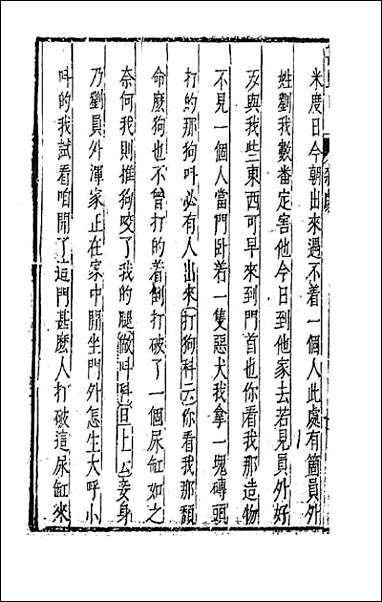 米度日今朝出來遇不着一個人此處有箇員外
姓劉我數番定害他今日到他家去若見員外好
歹與我些東西可早來到門首也你看我那造物
不見一個人當門卧着一隻惡犬我拿一塊磚頭
打的那狗呌必有人出來打狗科云你看我那頹
命麽狗也不曾打的着倒打破了一個尿缸如之
奈何我則推狗咬了我的腿做呌科旦上云妾身
乃劉員外渾家正在家中閒坐門外怎生大呼小
呌的我試看咱開了這門甚麽人打破這尿缸來